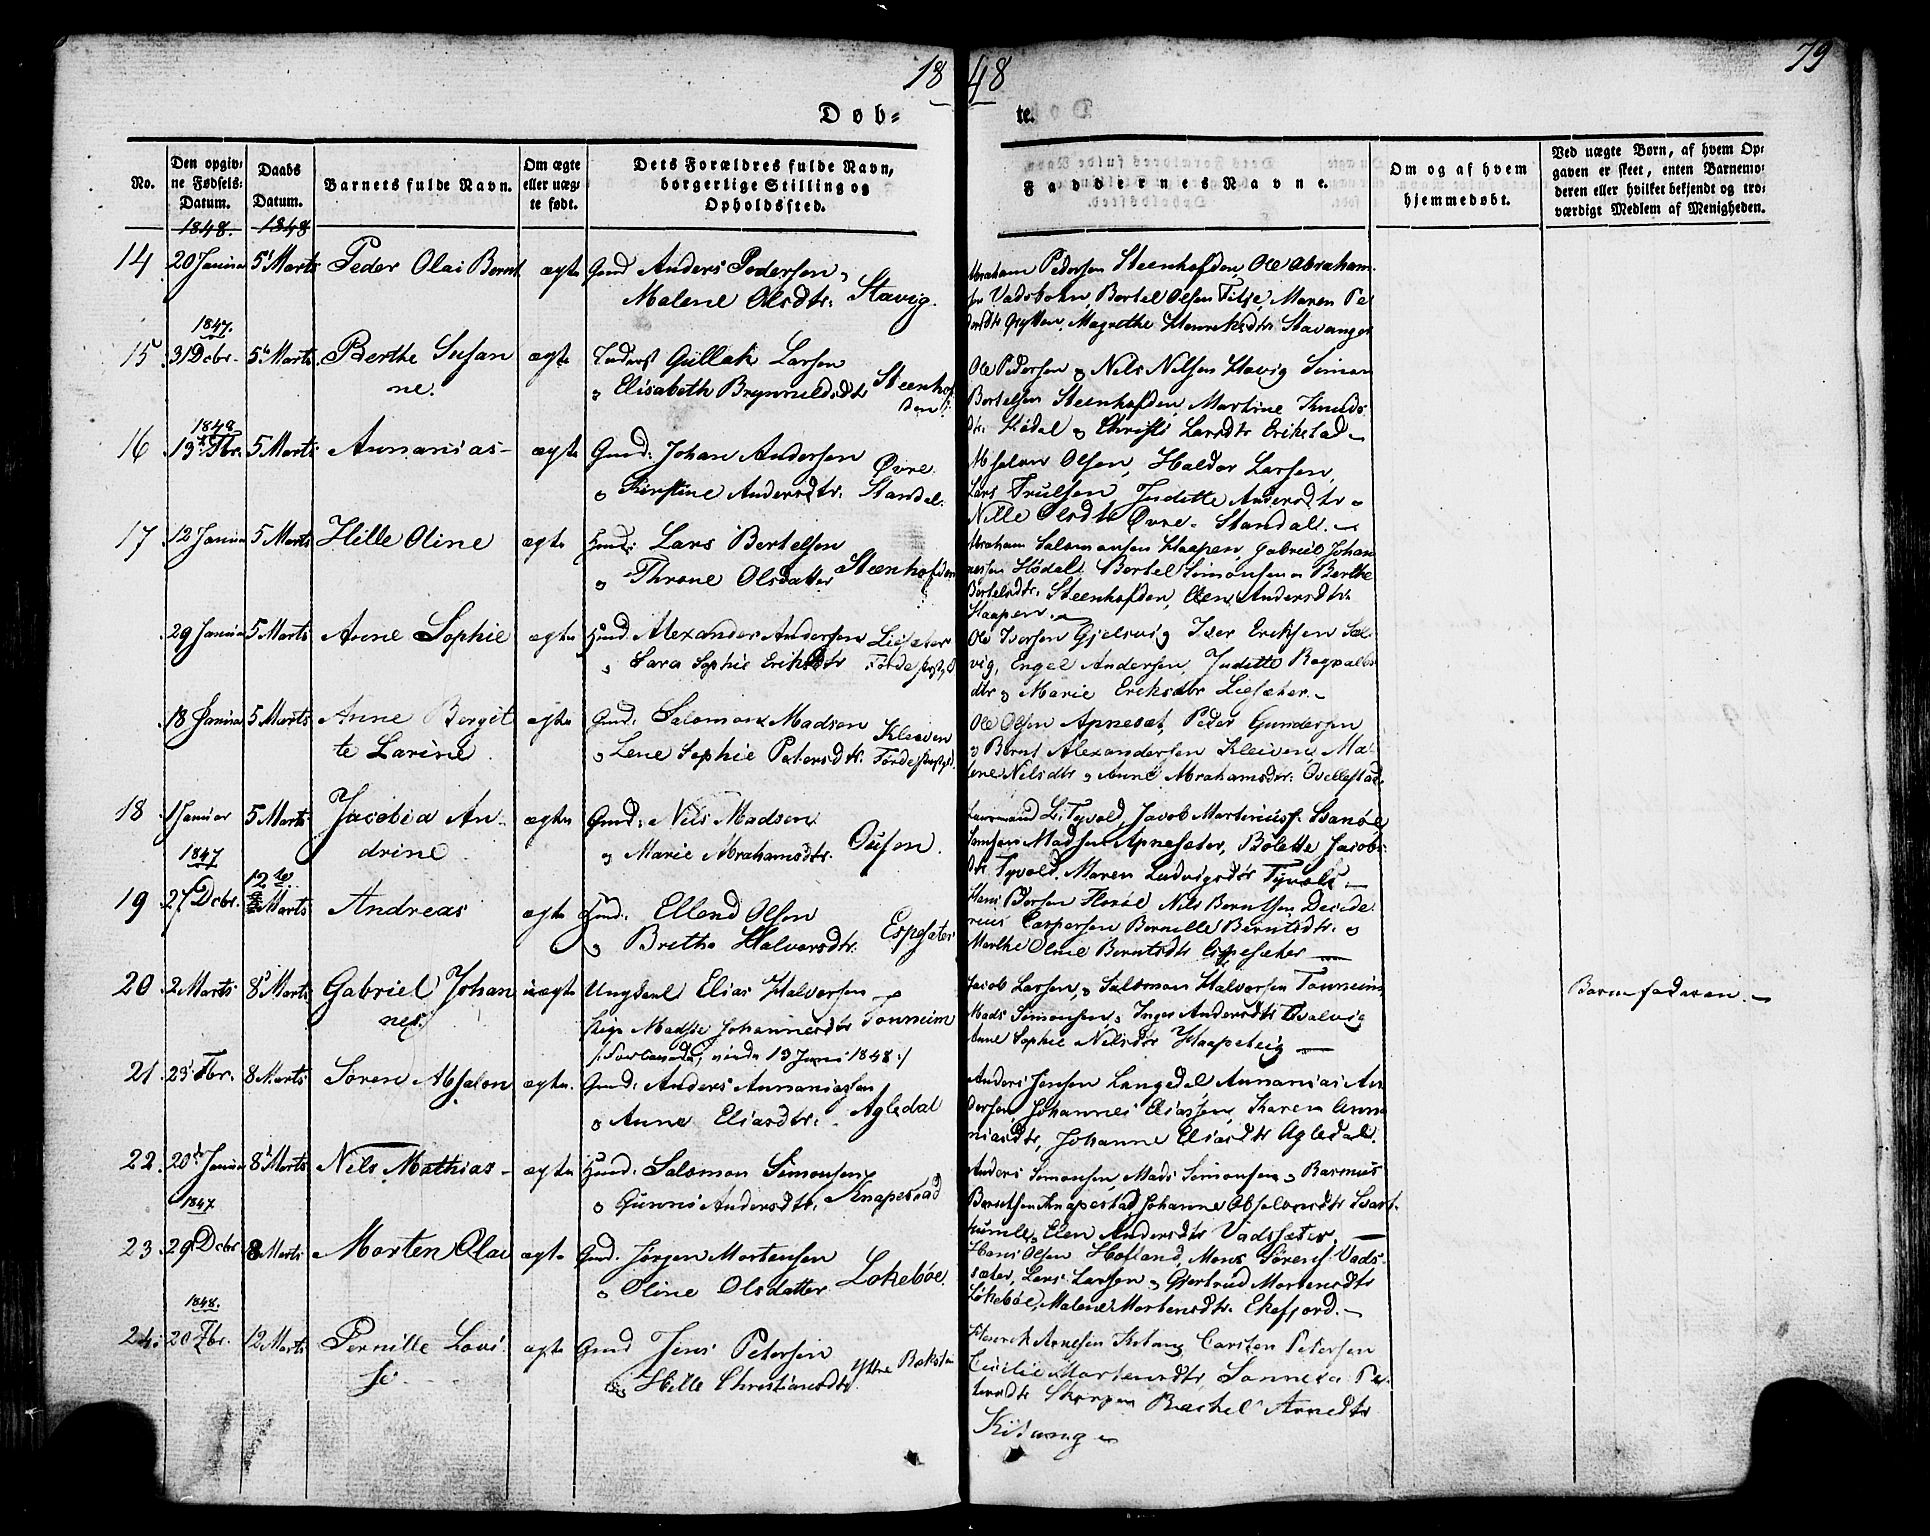 18 48
79
Døb- te.
No.
Den opgivne Fødsels-Datum.
Daabs Datum.
Barnets fulde Navn.
Om ægte eller uægte født.
Dets Forældres fulde Navn, borgerlige Stilling og Opholdssted.
Faddernes Navne.
Om og af hvem hjemmedøbt.
Ved uægte Børn, af hvem Opgaven er skeet, enten Barnemoderen eller hvilket bekjendt og troværdigt Medlem af Menigheden.
1848. 1848
14 20 Januar 5 Marts Peder Olai Bernt ægte Gmd Anders Pedersen
Malene Olsdtr: Stavig.
Abraham Pedersen Steenhofden, Ole Abraham-
Vadsbotn, Bertel Olsen Titje, Maren Pe-
Magrethe Henriksdtr Stavanger
1847.
15 31 Dcbr. 5 Marts Berthe Susan ægte Gullak Larsen
ne. Elisabeth Brynnildsdtr Steenhof
den
Ole Pedersen & Nils Nilsen Stavig Simon
Bertelsen Steenhofden, Martine Knuds-
dtr. Hødal & Christi Larsdtr Erikstad
1848
16 19 Fbr. 5 Marts Annanias ægte Gmd: Johan Andersen Øvre
& Kirstine Andersdtr. Standal.
Absalon Olsen, Haldor Larsen,
Lars Trulsen, Judette Andersdtr &
Nille Olsdtr Øvre Standal.
17 12 Januar 5 Marts Hille Oline ægte Huusm: Lars Bertelsen
& Throne Olsdatter Steenhofden
Abraham Salomonsen Haapen, Gabriel Johan
nessen Hødal Bertel Simonsen Berthe
Bertelsdtr. Steenhofden, Elen Andersdtr
Haapen.
29 Januar 5 Marts Anne Sophie ægte Huusm: Alexander Andersen Liesæter
& Sara Sophie Eriksdtr
Ole Iversen Gjelsvig Iver Eriksen Sæl-
vig, Engel Andersen, Judette
dtr & Marie Eriksdtr Liesæter.
18 Januar 5 Marts Anne Bergit ægte Gmd: Salomon Madsen Kleiven
te Larine. & Lene Sophie Petersdtr.
Ole Olsen Apnesæt, Peder Gundersen
& Bernt Alexandersen Kleiven, Ma-
lene Nilsdtr & Anne Abrahamsdtr:
18 1 Januar 5 Marts Jacobia An- ægte Gmd: Nils Madsen
drine & Marie Abrahamsdtr. Ousen.
Tyvold, Jacob Martinius Svanøe
Samson Madsen Apnesæter, Bolette Jacobs-
dtr Tyvold, Maren Ludvigsdtr Tyvold
1847
12te
19 27 Dcbr. Marts Andreas ægte Ellend Olsen
& Brithe Halvorsdtr. Espesæter
Nils Berntsen Decide-
rius Caspersen Bernille Berntsdtr. &
Marthe Oline Berntsdtr Espesæter
20 2 Marts 8 Marts Gabriel Johan uægte Ungkarl Elias Halvorsen
nes. Pige Madsie Johannesdtr Tonneim
Jacob Larsen, & Salomon Halvorsen Tonneim
Mads Simonsen, Inger Andersdtr
Anne Sophie Nilsdtr Haapsteig
Barnefaderen.
19 Juni 1848:/
21 23 Fbr. 8 Marts Søren Absalon ægte. Gmd: Anders Annaniassen
& Anne Eliasdtr: Agledal
Anders Jensen Langedal Annanias An
dersen, Johannes Eliassen, Karen Anna
niasdtr, Johanne Eliasdtr Agledal.
22 20 Januar 8 Marts Nils Mathias ægte Salomon Simonsen
& Gunni Andersdtr: Knapestad
Anders Simonsen, Mads Simonsen & Rasmus
Berntsen Knapestad Johanne Absalonsdtr Svart-
humle, Elen Andersdtr Vadsæter.
1847
23. 29 Dcbr 8 Marts Morten Olai ægte Gmd. Jørgen Mortensen
& Oline Olsdatter Løkebøe.
Hans Olsen Hofland, Mons Sørens. Vads-
sæter, Lars Larsen & Gjertrud Mortensdtr
Løkebøe, Malene Mortensdtr. Ekefjord.
1848.
24. 20 Fbr. 12 Marts Pernille Lovi- ægte Gmd Jens Petersen
se Hille Christiansdtr Yttre
Henrik Arnesen Carsten Petersen
Cecilie Mortensdtr, Pe-
tersdtr Skorpen Rachel Arnedtr
Kitang